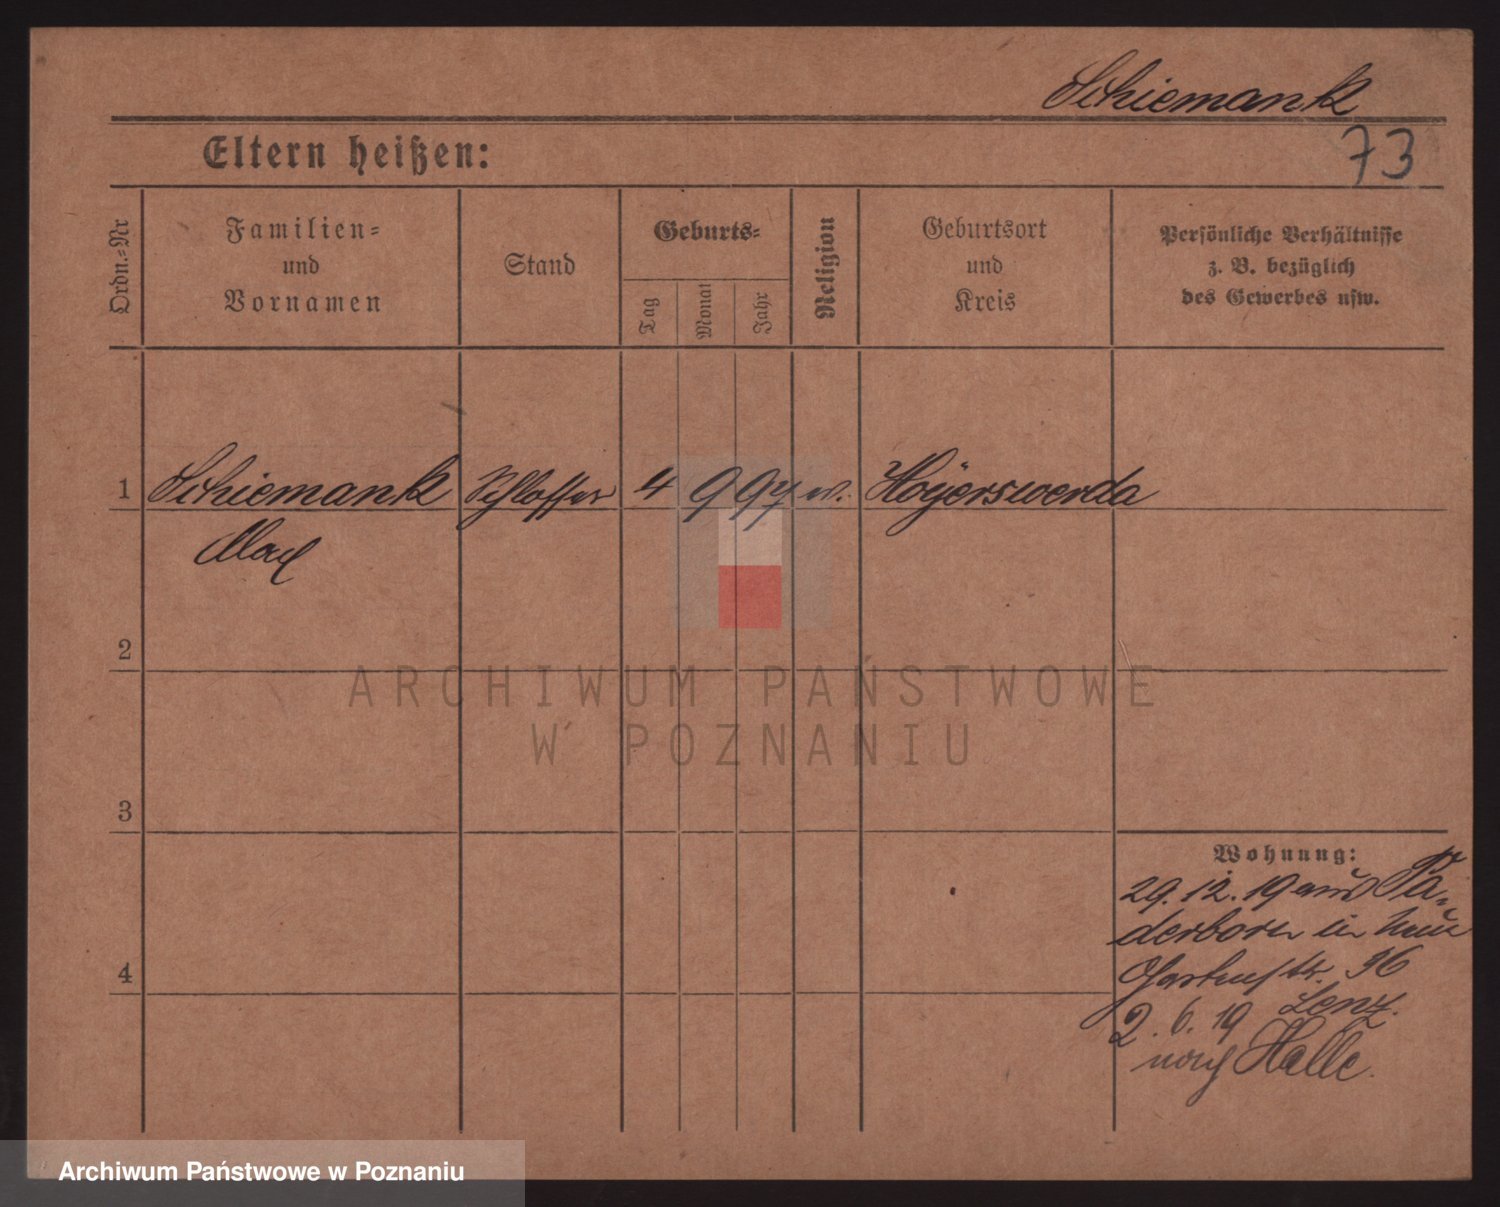 Schiemank
73
Eltern heißen:
Ordn.-Nr
Familien-
und
Vornamen
Stand
Geburts-
Tag
Monat
Jahr
Religion
Geburtsort
und
Kreis
Persönliche Verhältnisse
z. B. bezüglich
des Gewerbes usw.
1 Schiemank Schlosser 4 9 97 ev. Hoyerswerda
Max
2
ARCHIWUM PAŃSTWOWE
W POZNANIU
3
Wohnung:
29.12.19 aus Pa-
derborn in
4
Gartenstr. 36
Lenz.
2.6.19
nach Halle.
Archiwum Państwowe w Poznaniu